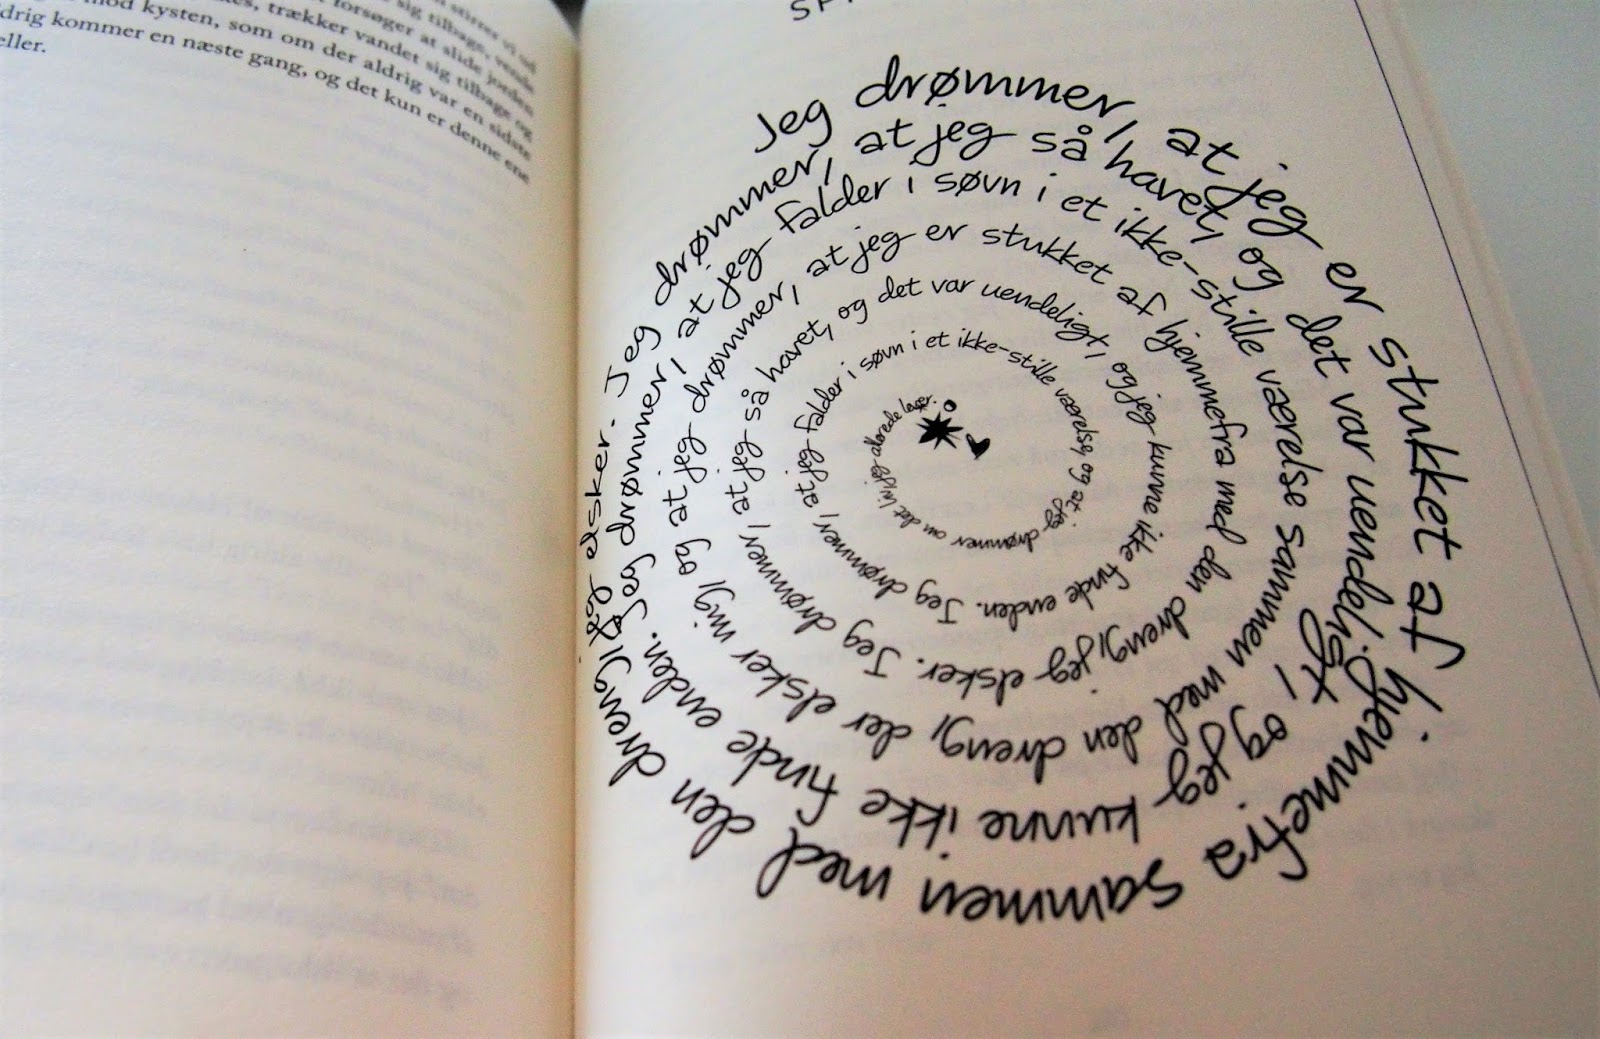 stirrer vi ud
sig tilbage, vende
forsøger at slide jorden
trækker vandet sig tilbage og
mod kysten, som om der aldrig var en sidste
drig kommer en næste gang, og det kun er denne ene
eller.
Jeg drømmer, at jeg er stukket af hjemmefra sammen med den dreng, jeg elsker. Jeg drømmer, at jeg så havet, og det var uendeligt, og jeg kunne ikke finde enden. Jeg drømmer, at jeg falder i søvn i et ikke-stille værelse sammen med den dreng, der elsker mig, og at jeg drømmer, at jeg er stukket af hjemmefra med den dreng, jeg elsker. Jeg drømmer, at jeg så havet, og det var uendeligt, og jeg kunne ikke finde enden. Jeg drømmer, at jeg falder i søvn i et ikke-stille værelse, og at jeg drømmer om det liv, jeg